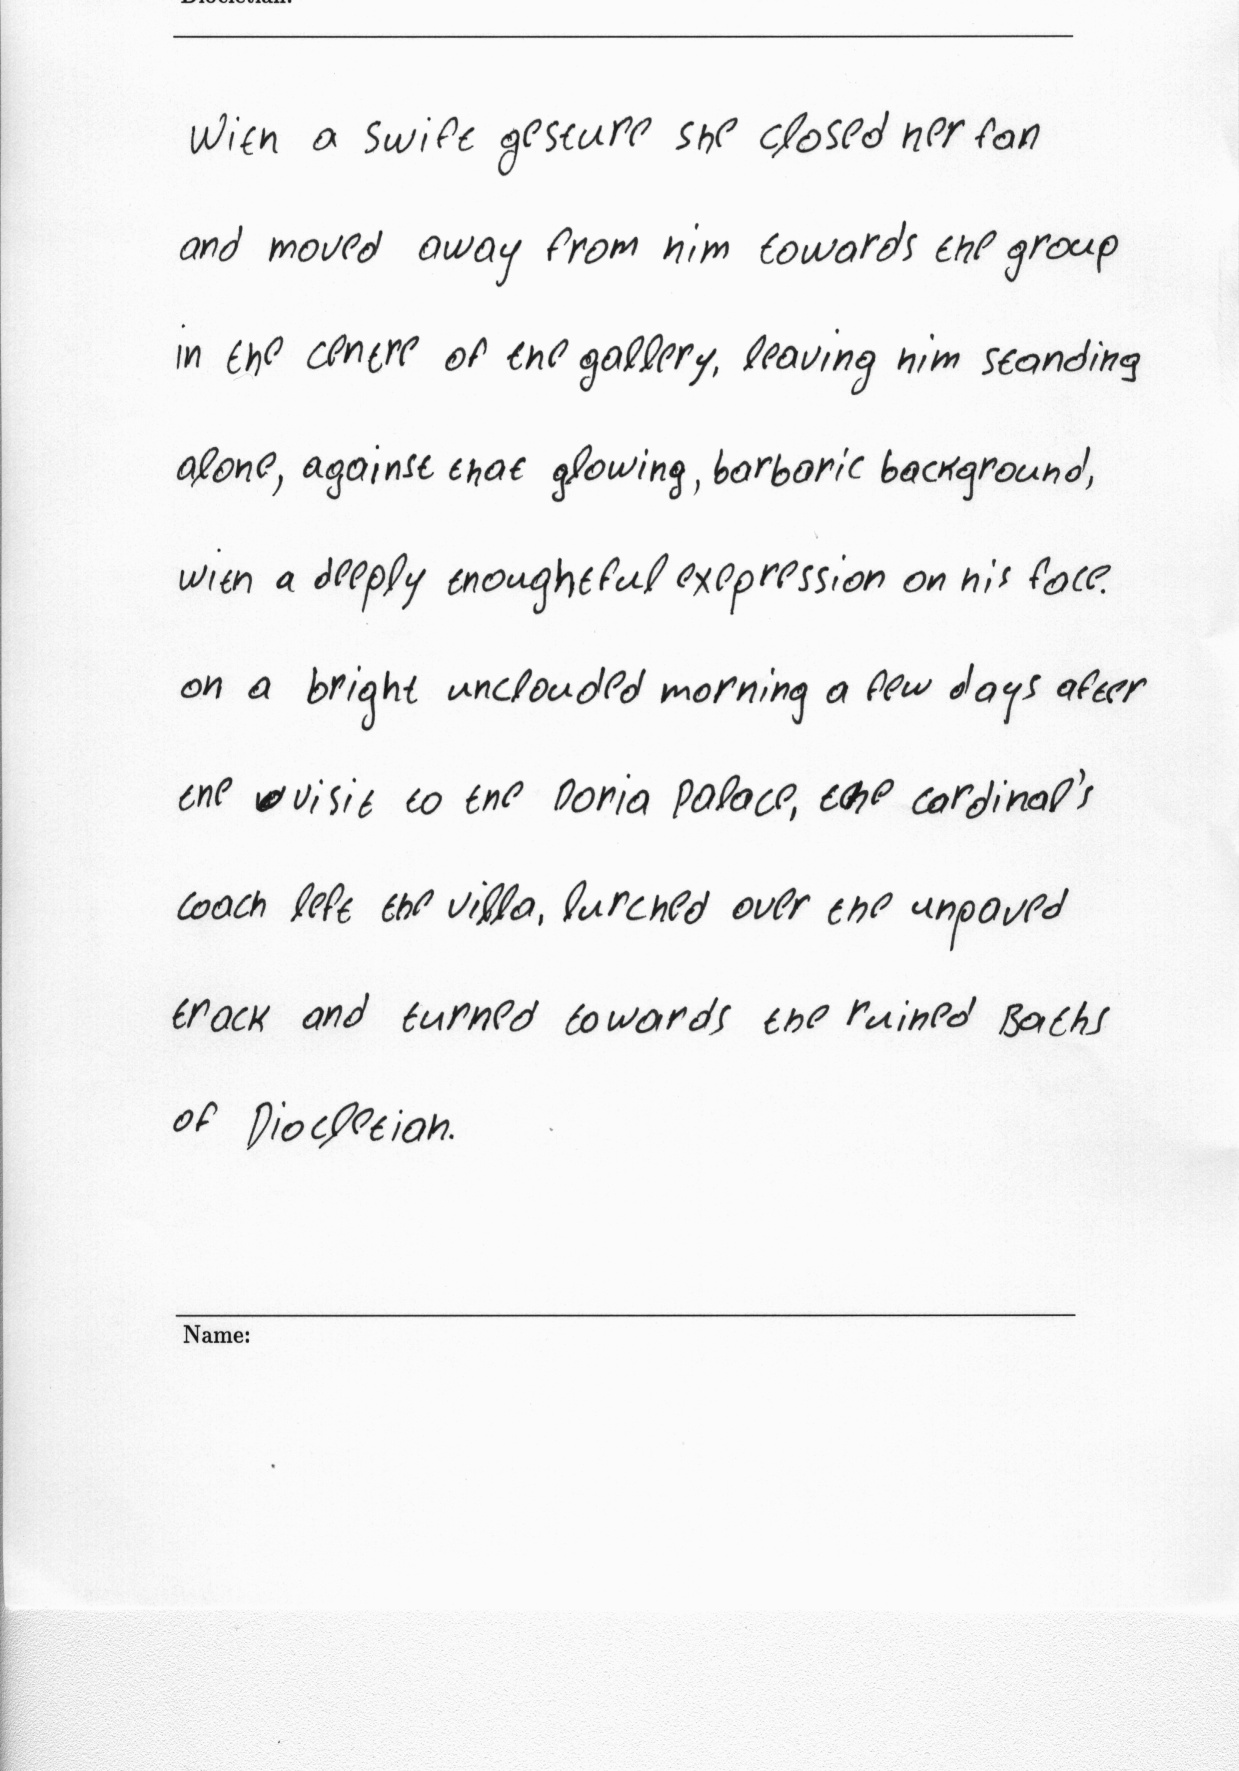 Diocletian.
With a swift gesture she closed her fan
and moved away from him towards the group
in the centre of the gallery, leaving him standing
alone, against that glowing, barbaric background,
with a deeply thoughtful exepression on his face.
on a bright unclouded morning a few days after
the visit to the Doria Palace, the cardinal's
coach left the villa, lurched over the unpaved
track and turned towards the ruined Baths
of Diocletian.
Name: